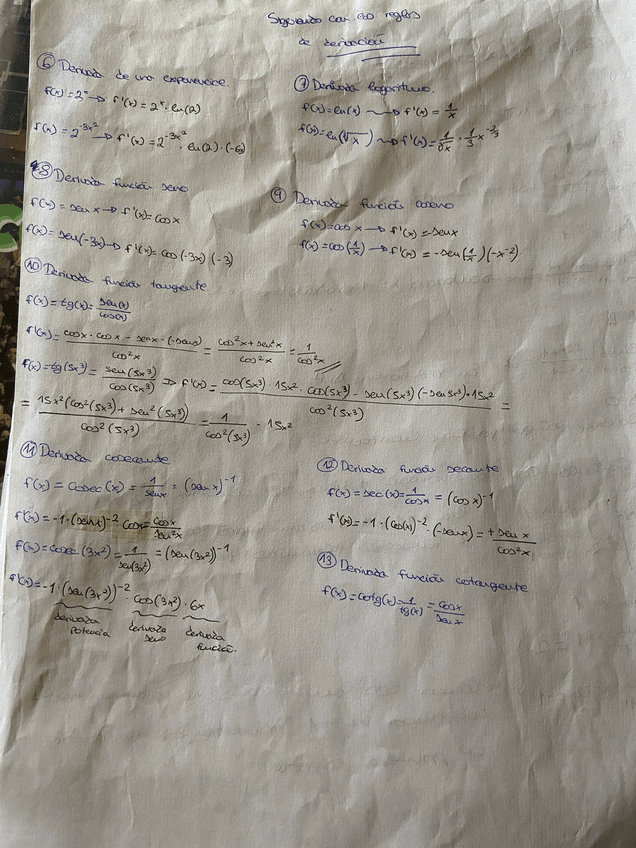 Siguiendo con las reglas
de derivación
⑥ Derivada de una exponencial.
f(x) = 2^x → f'(x) = 2^x · ln(2)
f(x) = 2^{-3x²} → f'(x) = 2^{-3x²} · ln(2) · (-6)
⑦ Derivada logaritmo.
f(x) = ln(x) → f'(x) = 1/x
f(x) = ln(∛x) → f'(x) = 1/∛x · 1/3 x^{-2/3}
⑧ Derivada función seno
f(x) = sen x → f'(x) = cos x
f(x) = sen(-3x) → f'(x) = cos(-3x)(-3)
⑨ Derivada función coseno
f(x) = cos x → f'(x) = -sen x
f(x) = cos(1/x) → f'(x) = -sen(1/x)(-x^{-2})
⑩ Derivada función tangente
f(x) = tg(x) = sen(x)/cos(x)
f'(x) = (cos x · cos x - sen x · (-sen x))/cos²x = (cos²x + sen²x)/cos²x = 1/cos²x
f(x) = tg(5x³) = sen(5x³)/cos(5x³) ⇒ f'(x) = (cos(5x³) · 15x² · cos(5x³) - sen(5x³)(-sen 5x³) · 15x²)/cos²(5x³) =
= 15x²(cos²(5x³) + sen²(5x³))/cos²(5x³) = 1/cos²(5x³) · 15x²
⑪ Derivada cosecante
f(x) = cosec(x) = 1/sen x = (sen x)^{-1}
f'(x) = -1 · (sen x)^{-2} cos x = cos x/sen²x
f(x) = cosec(3x²) = 1/sen(3x²) = (sen(3x²))^{-1}
f'(x) = -1 · (sen(3x²))^{-2} · cos(3x²) · 6x
derivada potencia
derivada seno
derivada función.
⑫ Derivada función secante
f(x) = sec(x) = 1/cos x = (cos x)^{-1}
f'(x) = -1 · (cos(x))^{-2} · (-sen x) = + sen x/cos²x
⑬ Derivada función cotangente
f(x) = cotg(x) = 1/tg(x) = cos x/sen x